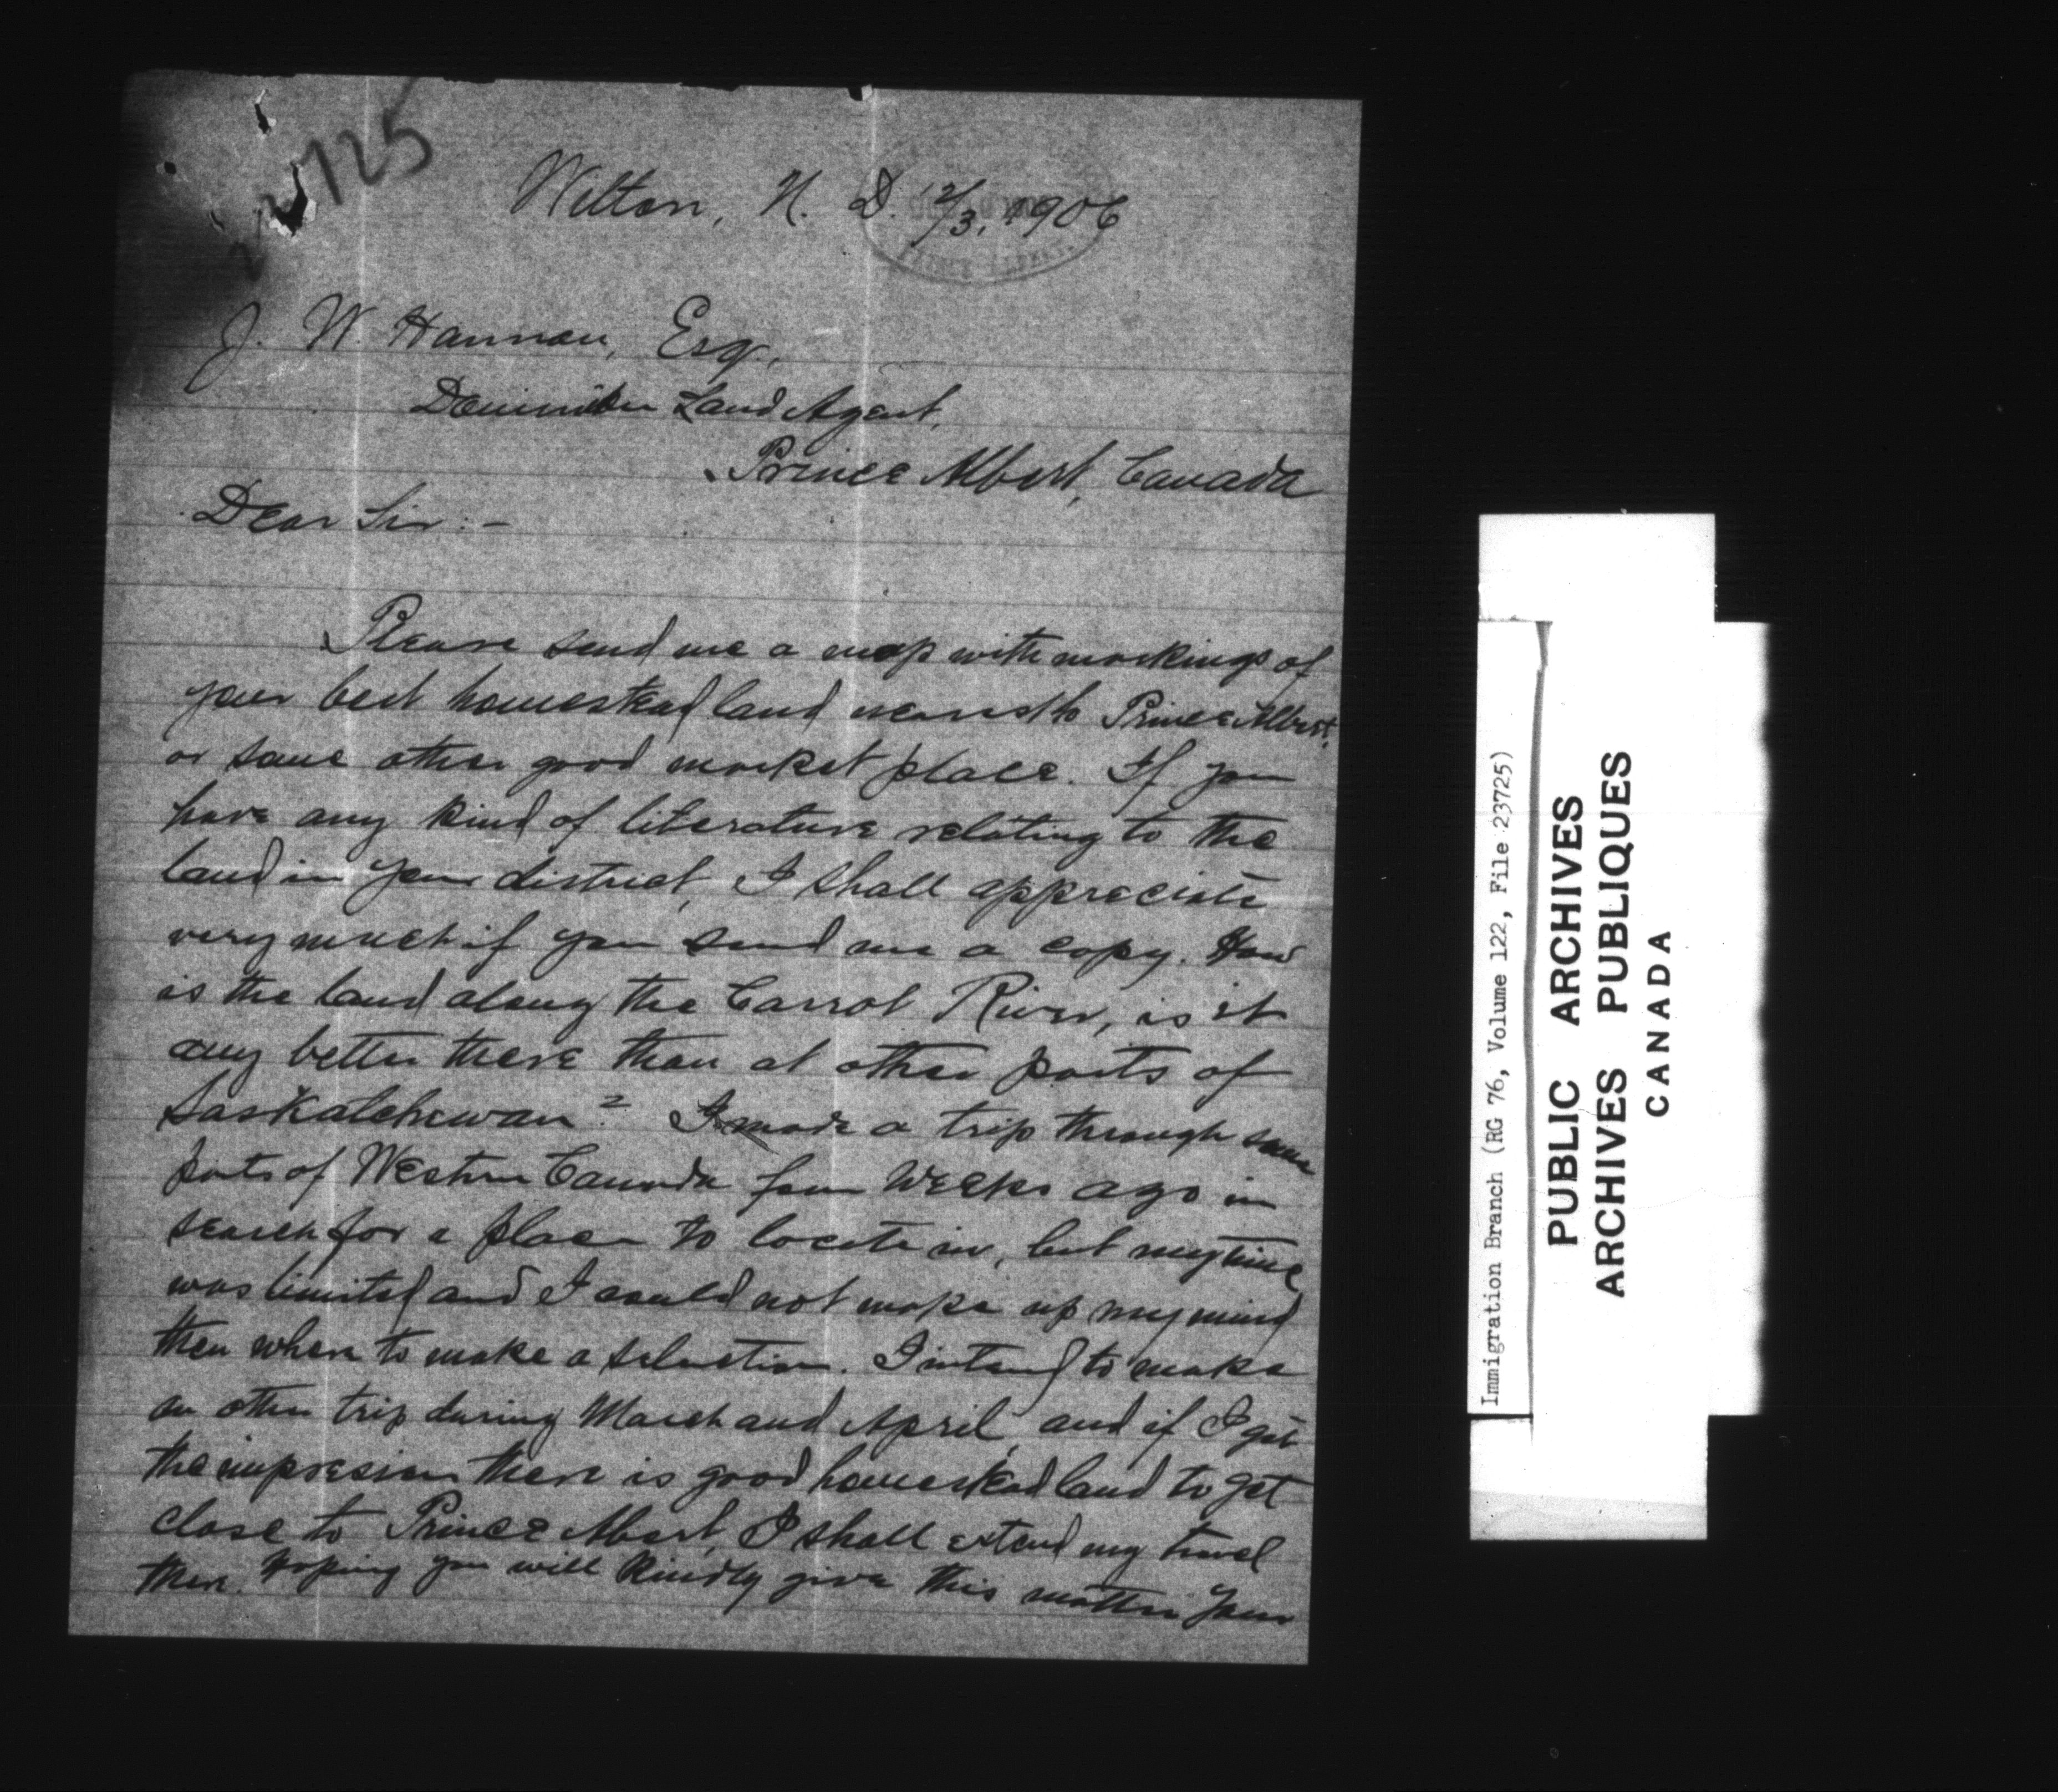 23725
Wilton, N. D. 12/3, 1906
J. W. Hannon, Esq.,
Dominion Land Agent,
Prince Albert, Canada
Dear Sir:-
Please send me a map with markings of
your best homestead land nearest to Prince Albert.
or some other good market place. If you
have any kind of literature relating to the
land in your district, I shall appreciate
very much if you send me a copy. How
is the land along the Carrot River, is it
any better there than at other parts of
Saskatchewan? I made a trip through some
parts of Western Canada four weeks ago in
search for a place to locate in, but my time
was limited and I could not make up my mind
then where to make a selection. I intend to make
an other trip during March and April, and if I get
the impression there is good homestead land to get
close to Prince Albert, I shall extend my travel
there. Hoping you will kindly give this matter your
Immigration Branch (RG 76, Volume 122, File 23725)
PUBLIC ARCHIVES
ARCHIVES PUBLIQUES
CANADA